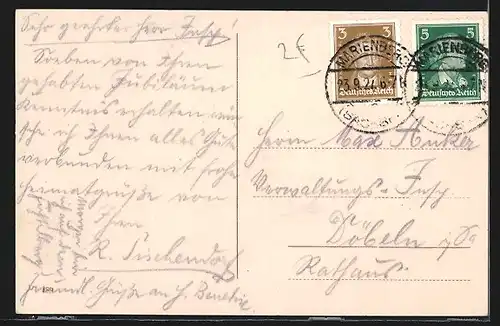 Sehr geehrter Herr Insp!
Soeben von Ihrem
gehabten Jubiläum
Kenntnis erhalten wün
sche ich Ihnen alles Gute
verbunden mit frohe
Heimatgrüße von
Ihrem
R. Tischendorf
freundl. Grüße an H.
Morgen bin
ich auf dem
2 €
3 3
Deutsches Reich
5 5
Deutsches Reich
MARIENBERG
MARIENBERG
Herrn Max Ankler
Verwaltungs-Insp
Döbeln i/Sa
Rathaus